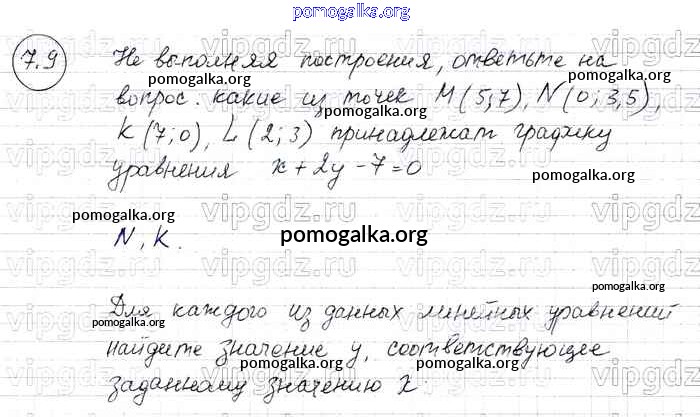 pomogalka.org
7.9
Не выполняя построения, ответьте на
pomogalka.org
вопрос: какие из точек M(5;7), N(0; 3,5),
pomogalka.org
K(7;0), L(2;3) принадлежат графику
уравнения x+2y-7=0
pomogalka.org
vipgdz.ru vipgdz.ru vipgdz.ru
pomogalka.org
N, K.
pomogalka.org
vipgdz.ru vipgdz.ru vipgdz.ru
Для каждого из данных линейных уравнений
pomogalka.org pomogalka.org
найдите значение y, соответствующее
pomogalka.org
заданному значению x.
pomogalka.org